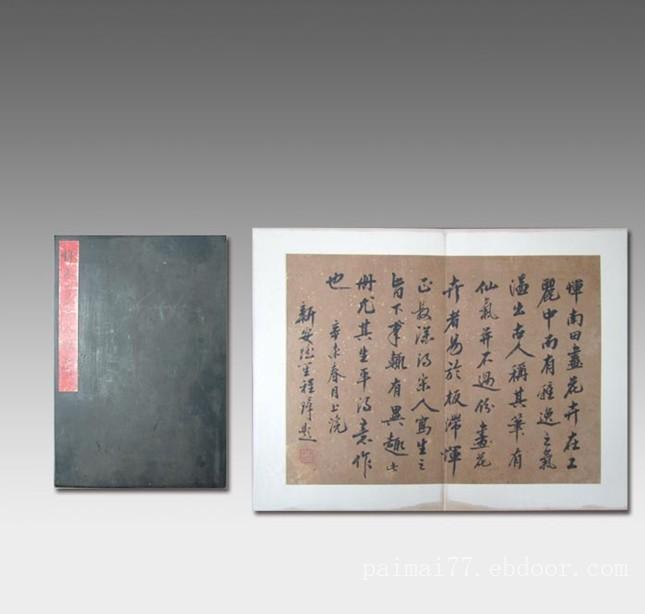 惲南田畫花卉在工
麗中而有雅逸之氣
溢出古人稱其筆有
仙氣並不過份畫花
卉者易於板滯惲
正叔深得宋人寫生之
旨下筆輒有異趣此
冊尤其生平得意作
也
辛未春月上浣
新安 生程璋題
paimai77.ebdoor.com